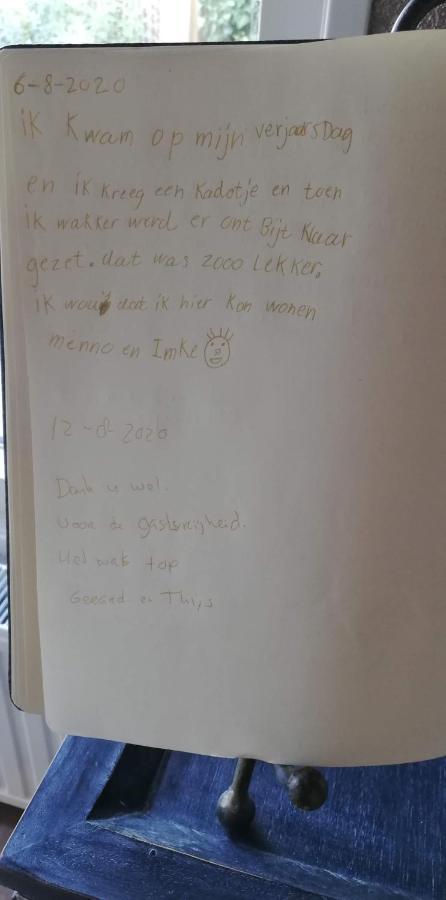 6-8-2020
ik kwam op mijn verjaarsDag
en ik kreeg een kadotje en toen
ik wakker werd er ont Bijt klaar
gezet. dat was zooo Lekker.
ik wou dat ik hier kon wonen
menno en Imke
12-8-2020
Dank u wel.
Voor de gastvrijheid.
Het was top
en Thijs